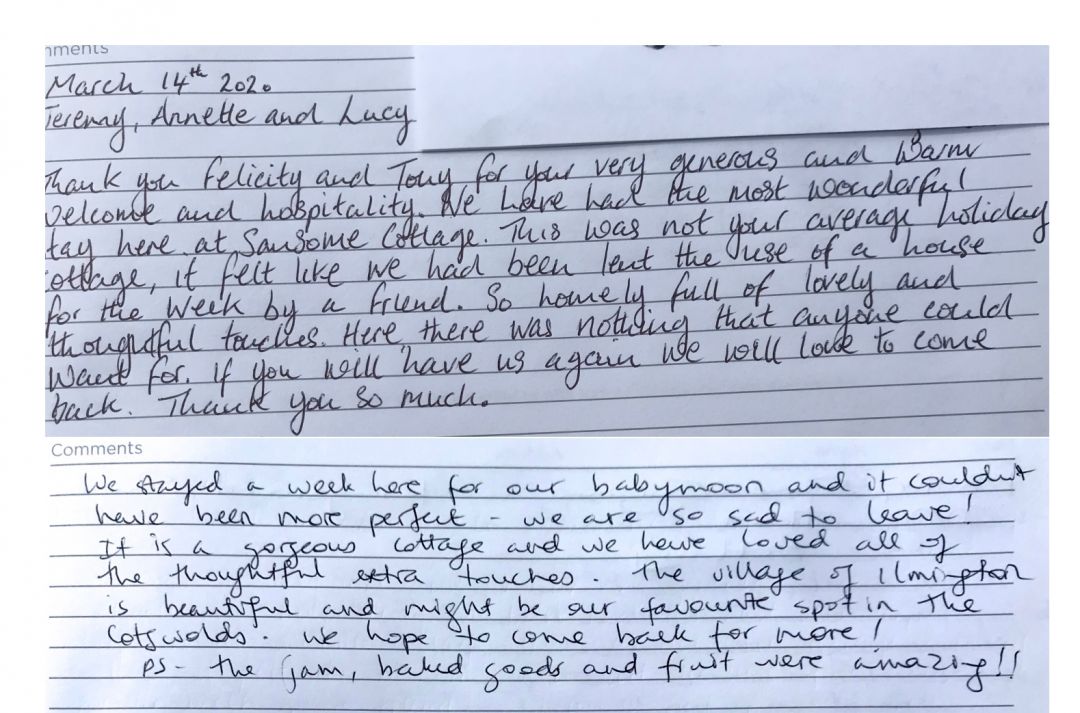 mments
March 14th 2020
Jeremy, Annette and Lucy
Thank you Felicity and Tony for your very generous and warm
welcome and hospitality. We have had the most wonderful
tay here at Sansome Cottage. This was not your average holiday
cottage, it felt like we had been lent the use of a house
for the week by a friend. So homely full of lovely and
thoughtful touches. Here there was nothing that anyone could
want for. If you will have us again we will love to come
back. Thank you so much.
Comments
We stayed a week here for our babymoon and it couldn't
have been more perfect - we are so sad to leave!
It is a gorgeous cottage and we have loved all of
the thoughtful extra touches. The village of Ilmington
is beautiful and might be our favourite spot in the
Cotswolds. We hope to come back for more!
PS - the jam, baked goods and fruit were amazing!!